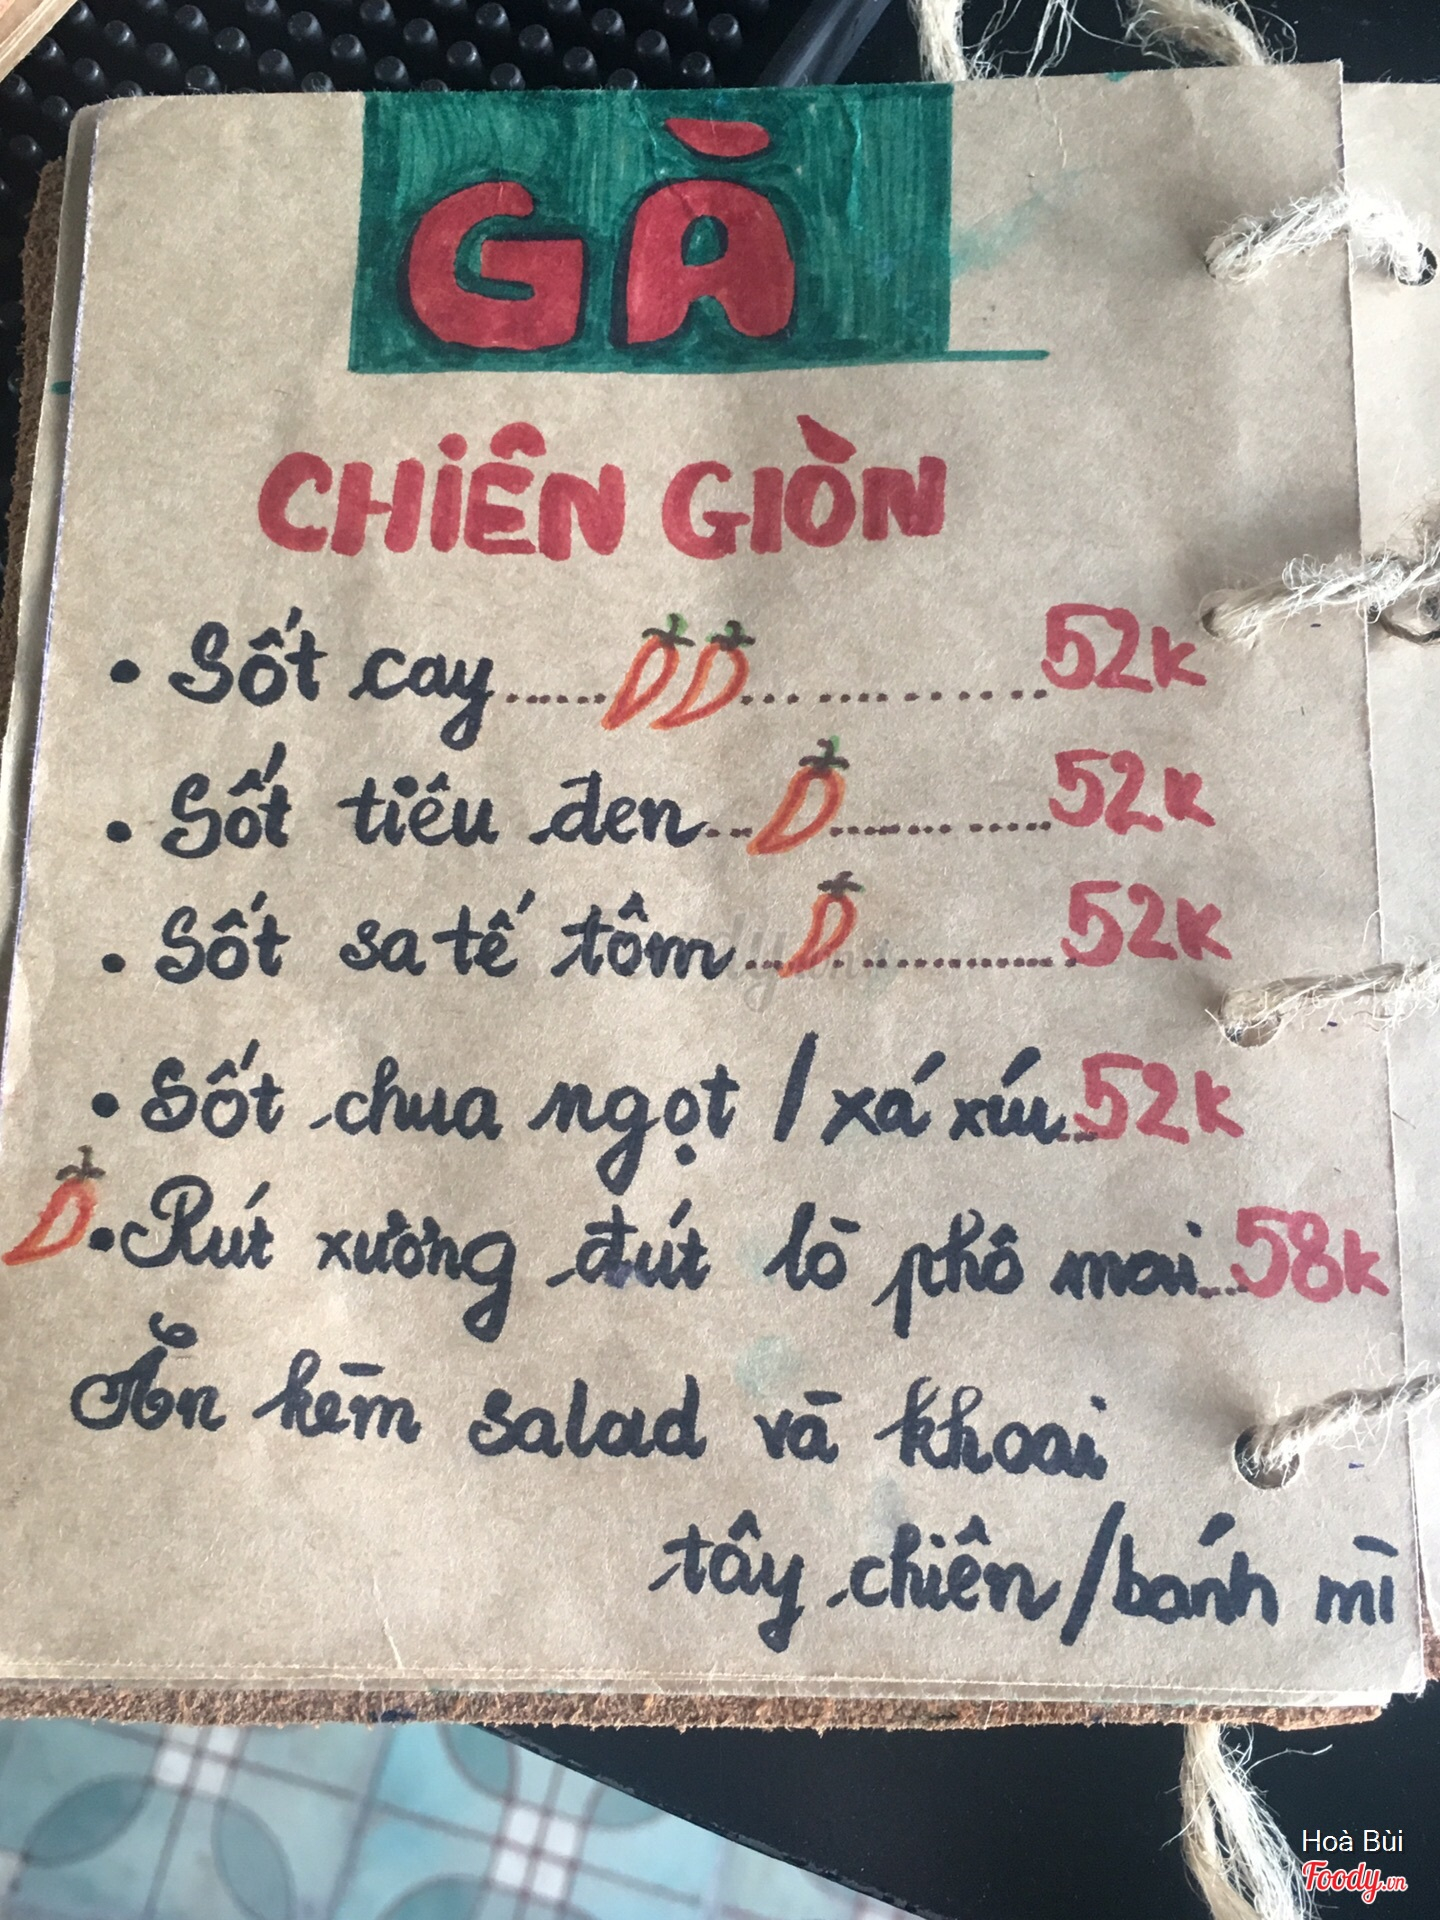 GÀ
CHIÊN GIÒN
• Sốt cay ........ 52k
• Sốt tiêu đen ........ 52k
• Sốt sa tế tôm ........ 52k
• Sốt chua ngọt / xá xíu ... 52k
• Rút xương đút lò phô mai ... 58k
Ăn kèm salad và khoai
tây chiên / bánh mì
Hoà Bùi
Foody.vn